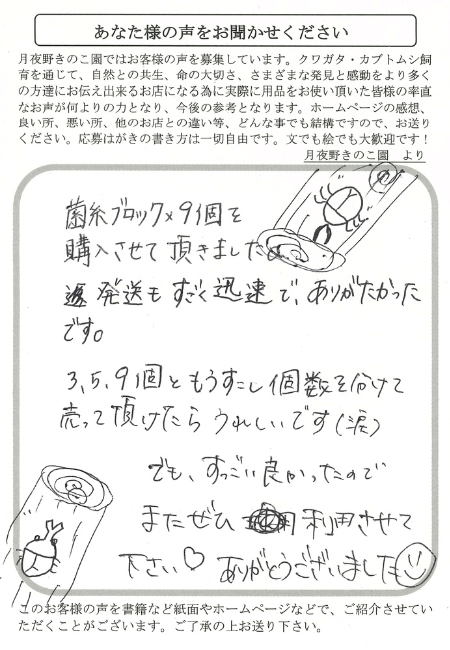 あなた様の声をお聞かせください
月夜野きのこ園ではお客様の声を募集しています。クワガタ・カブトムシ飼
育を通じて、自然との共生、命の大切さ、さまざまな発見と感動をより多く
の方達にお伝え出来るお店になる為に実際に用品をお使い頂いた皆様の率直
なお声が何よりの力となり、今後の参考となります。ホームページの感想、
良い所、悪い所、他のお店との違い等、どんな事でも結構ですので、お送り
ください。応募はがきの書き方は一切自由です。文でも絵でも大歓迎です！
月夜野きのこ園　より
菌糸ブロック×9個を
購入させて頂きました
発送もすごく迅速で、ありがたかった
です。
3、5、9個ともうすこし個数を分けて
売って頂けたらうれしいです(涙)
でも、すっごい良かったので
またぜひ 利用させて
下さい♡ ありがとうございました
このお客様の声を書籍など紙面やホームページなどで、ご紹介させてい
ただくことがございます。ご了承の上お送り下さい。